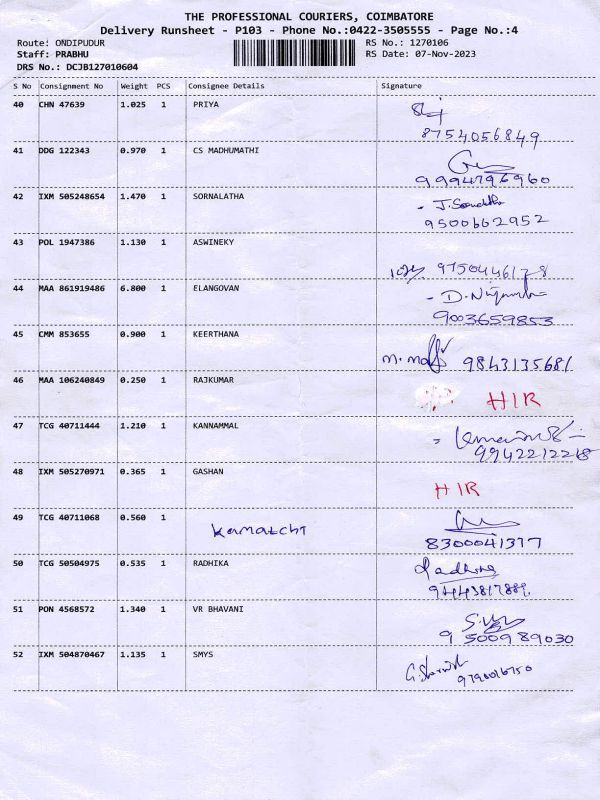 THE PROFESSIONAL COURIERS, COIMBATORE
Delivery Runsheet - P103 - Phone No.:0422-3505555 - Page No.:4
Route: ONDIPUDUR RS No.: 1270106
Staff: PRABHU RS Date: 07-Nov-2023
DRS No.: DCJB127010604
S No Consignment No Weight PCS Consignee Details Signature
40 CHN 47639 1.025 1 PRIYA
8754056849
41 DDG 122343 0.970 1 CS MADHUMATHI
9994796960
42 IXM 505248654 1.470 1 SORNALATHA
9500662952
43 POL 1947386 1.130 1 ASWINEKY
44 MAA 861919486 6.800 1 ELANGOVAN
9003659853
45 CMM 853655 0.900 1 KEERTHANA
9843135681
46 MAA 106240849 0.250 1 RAJKUMAR
HIR
47 TCG 40711444 1.210 1 KANNAMMAL
48 IXM 505270971 0.365 1 GASHAN
HIR
49 TCG 40711068 0.560 1 Kamatchi
8300041377
50 TCG 50504975 0.535 1 RADHIKA
Radhika
51 PON 4568572 1.340 1 VR BHAVANI
9500989030
52 IXM 504870467 1.135 1 SMYS